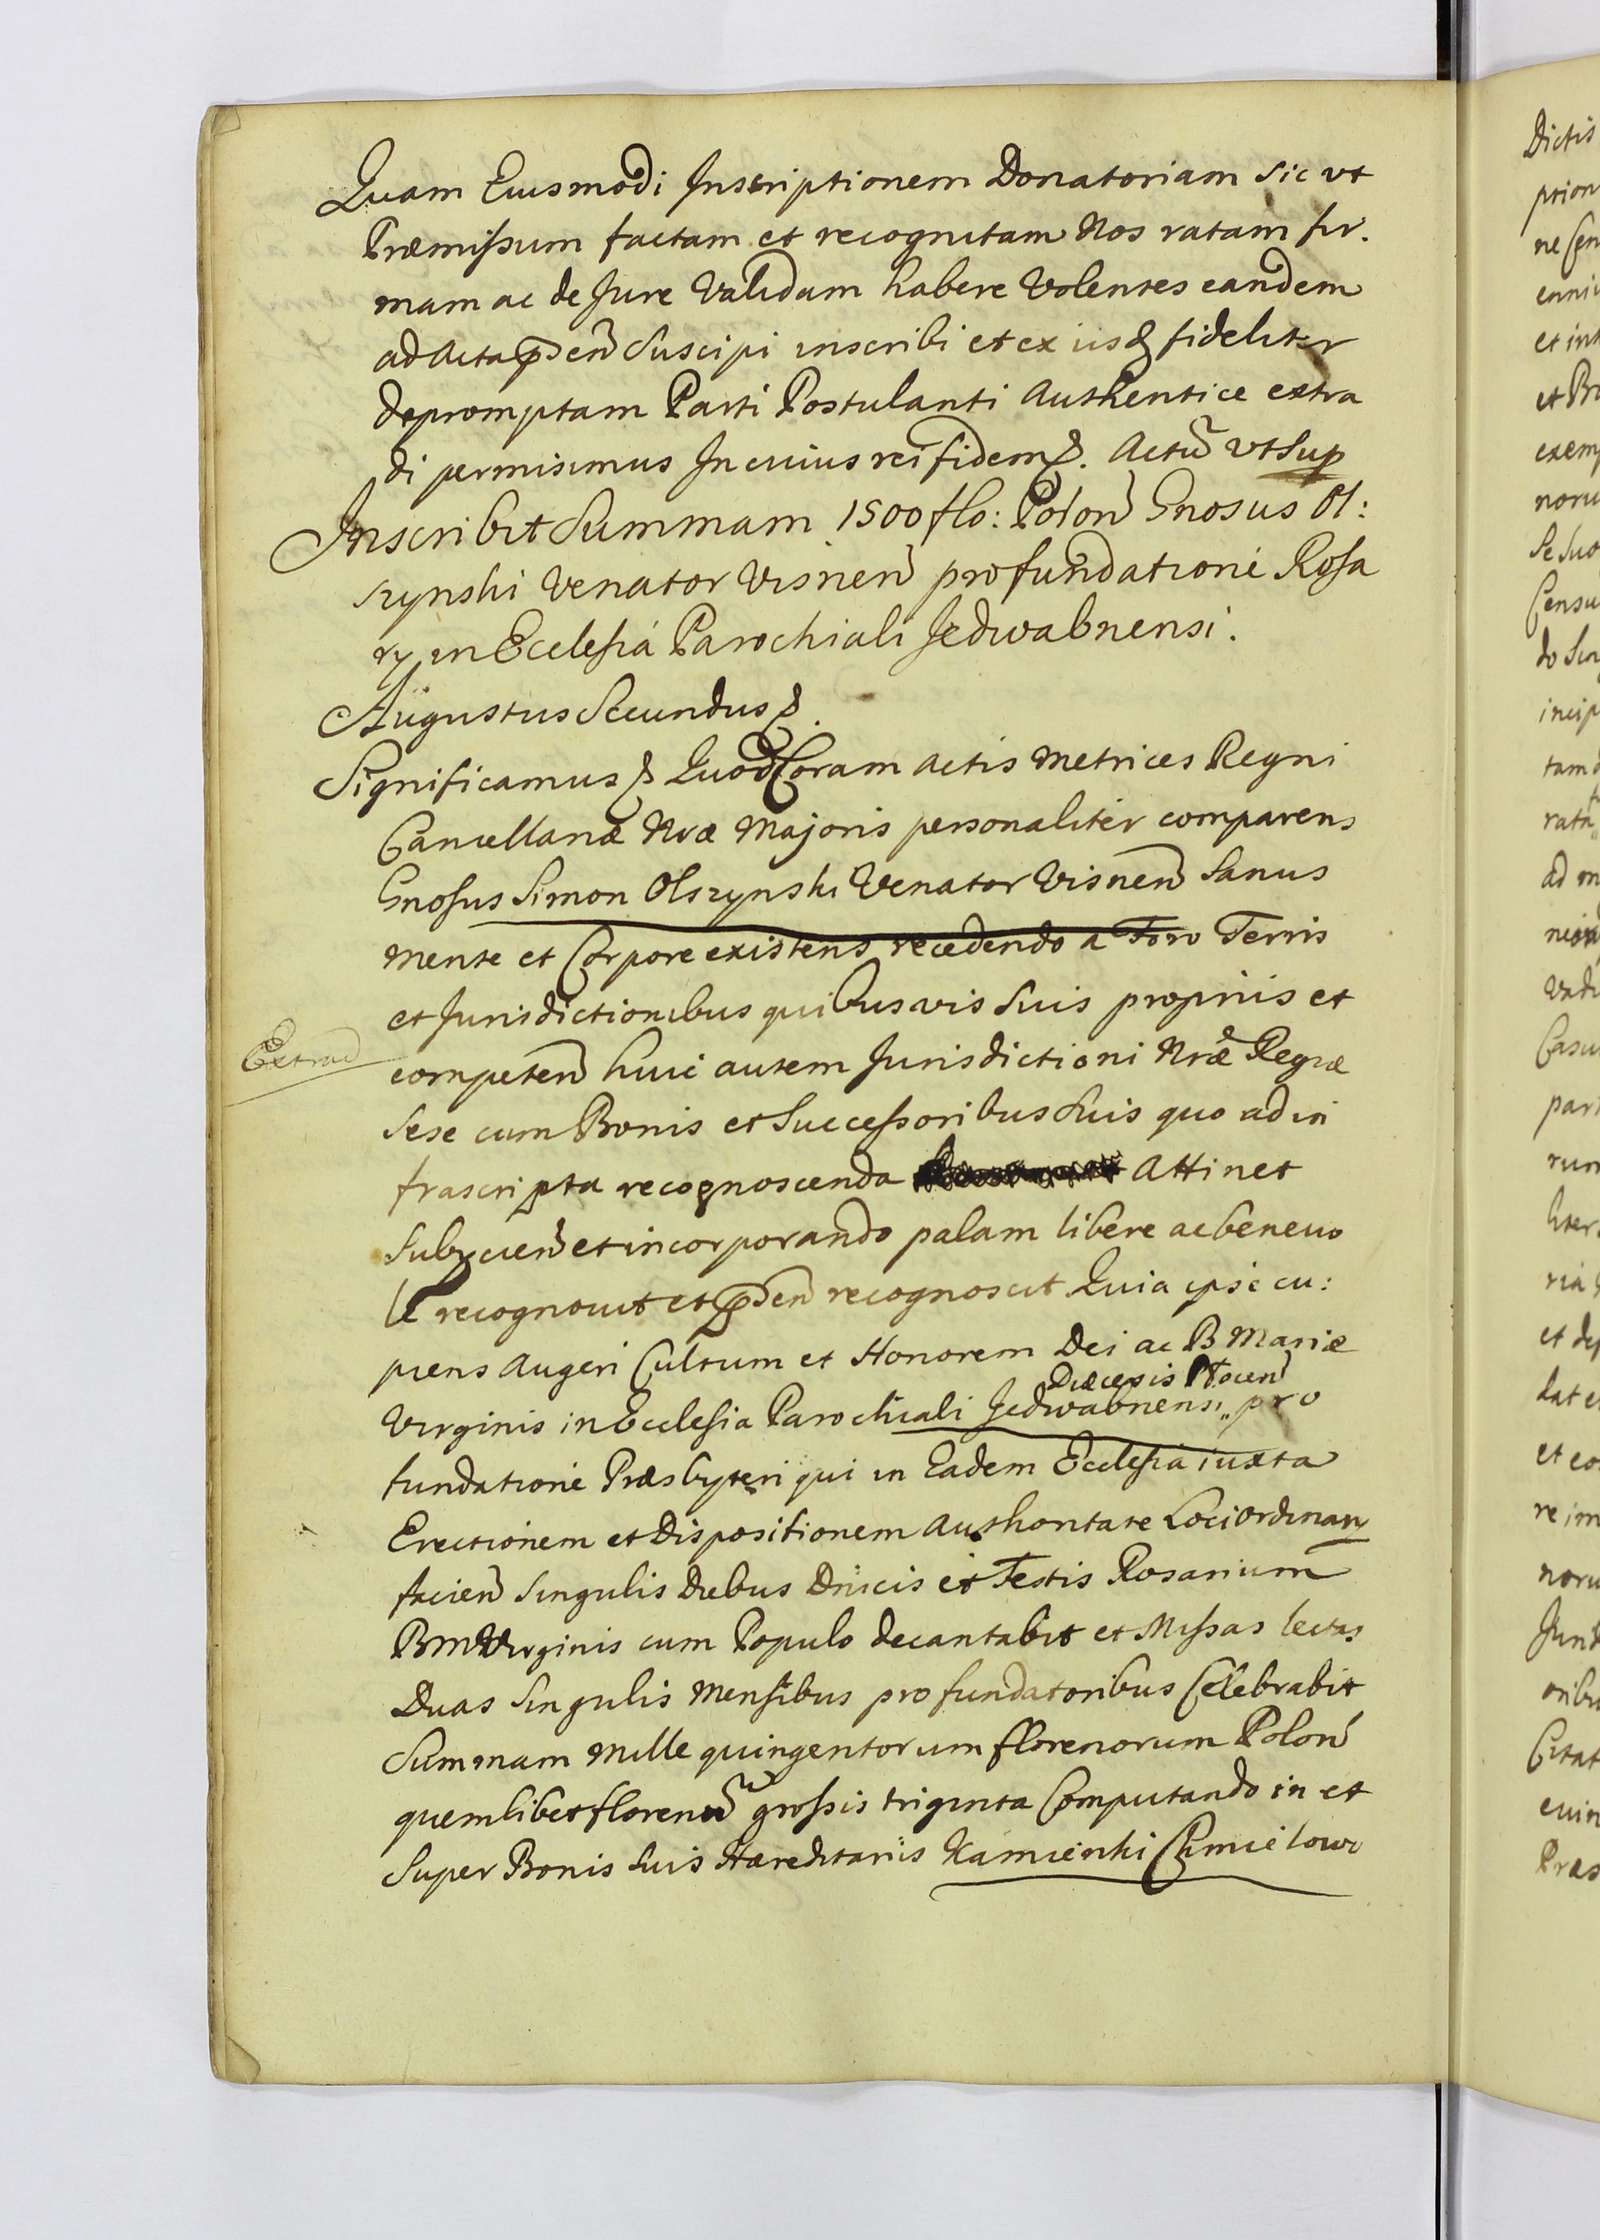 Quam Eiusmodi Inscriptionem Donatoriam sic vt
Præmissum factam et recognitam Nos ratam fir.
mam ac de Jure Validam habere Volentes eandem
ad Acta p̄sen̄ suscipi inscribi et ex iisq fideliter
depromptam Parti Postulanti Authentice extra
di permisimus In cuius rei fidem &. Actū vt Sup
Inscribit Summam 1500 flo: Polon̄ Gnosus Ol:
szynski Venator Visnen̄ pro fundatione Rosa
ry in Ecclesia Parochiali Jedwabnensi.
Augustus Secundus &.
Significamus & Quod Coram Actis Metrices Regni
Cancellariæ Nræ Majoris personaliter comparens
Gnosus Simon Olszynski Venator Visnen̄ Sanus
Mente et Corpore existens recedendo a Foro Terris
et Jurisdictionibus quibusvis Suis proprijs et
Extrad
competen̄ huic autem Jurisdictioni Nræ Regiæ
Sese cum Bonis et Successoribus Suis quo ad in
frascripta recognoscenda Attinet
Subijcien̄ et incorporando palam libere ac benevo
le recognovit et p̄sen̄ recognoscit Quia ipse cu:
piens Augeri Cultum et Honorem Dei ac B Mariæ
Diæcesis Plocen̄
Virginis in Ecclesia Parochiali Jedwabnensi „ pro
fundatione Præsbyteri qui in Eadem Ecclesia iuxta
Erectionem et Dispositionem Authoritate Loci Ordinarÿ
facien̄ Singulis Diebus Dnicis et Festis Rosarium
BM Virginis cum Populo decantabit et Missas lectas
Duas Singulis Mensibus pro fundatoribus Celebrabit
Summam Mille quingentorum florenorum Polon̄
quemlibet florenū grossis triginta Computando in et
Super Bonis Suis Hæreditariis Kamienki Chmielowo